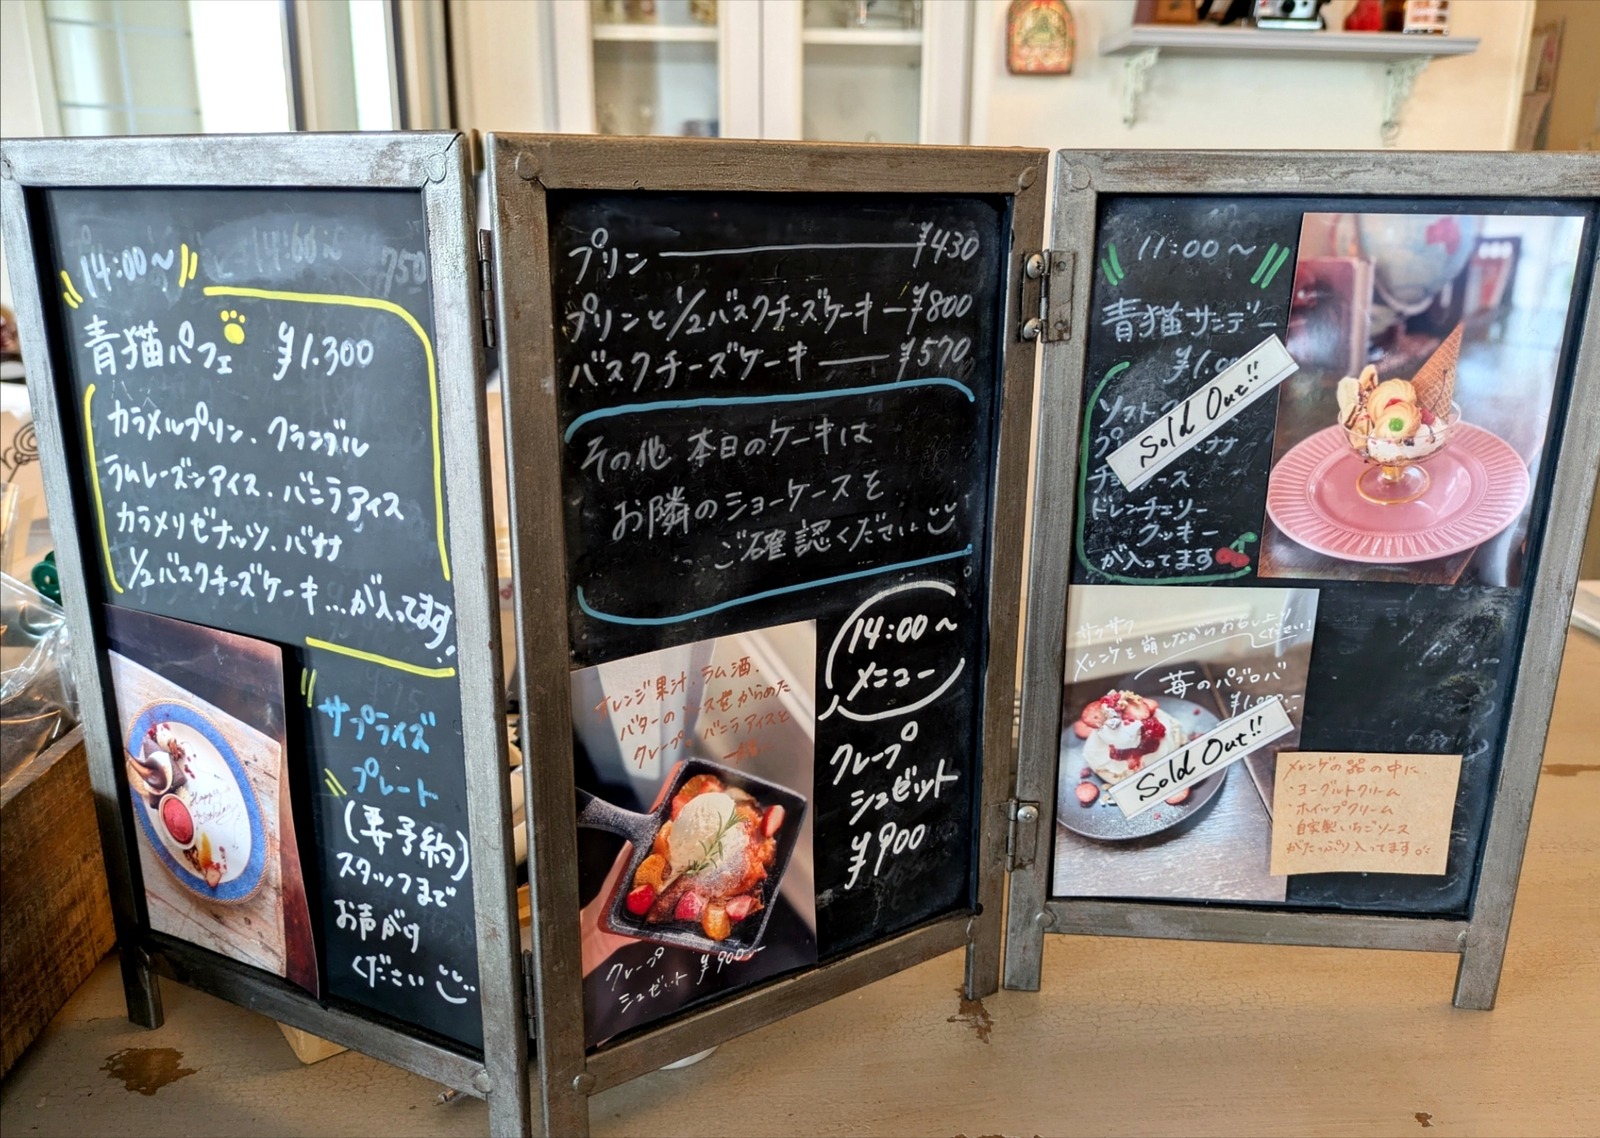 14:00～
青猫パフェ ¥1.300
カラメルプリン、クランブル
ラムレーズンアイス、バニラアイス
カラメリゼナッツ、バナナ
1/2バスクチーズケーキ…が入ってます!
サプライズ
プレート
(要予約)
スタッフまで
お声がけ
ください
プリン ¥430
プリンと1/2バスクチーズケーキ ¥800
バスクチーズケーキ ¥570
その他 本日のケーキは
お隣のショーケースを
ご確認ください
オレンジ果汁、ラム酒、
バターのソースをからめた
クレープ、バニラアイスと
クレープ
シュゼット ¥900-
14:00～
メニュー
クレープ
シュゼット
¥900
11:00～
青猫サンデー
Sold Out!!
ドレンチェリー
クッキー
が入ってます
サクサク
メレンゲを崩しながらお召し上がりください!
苺のパブロバ
Sold Out!!
メレンゲの器の中に、
・ヨーグルトクリーム
・ホイップクリーム
・自家製いちごソース
がたっぷり入ってます